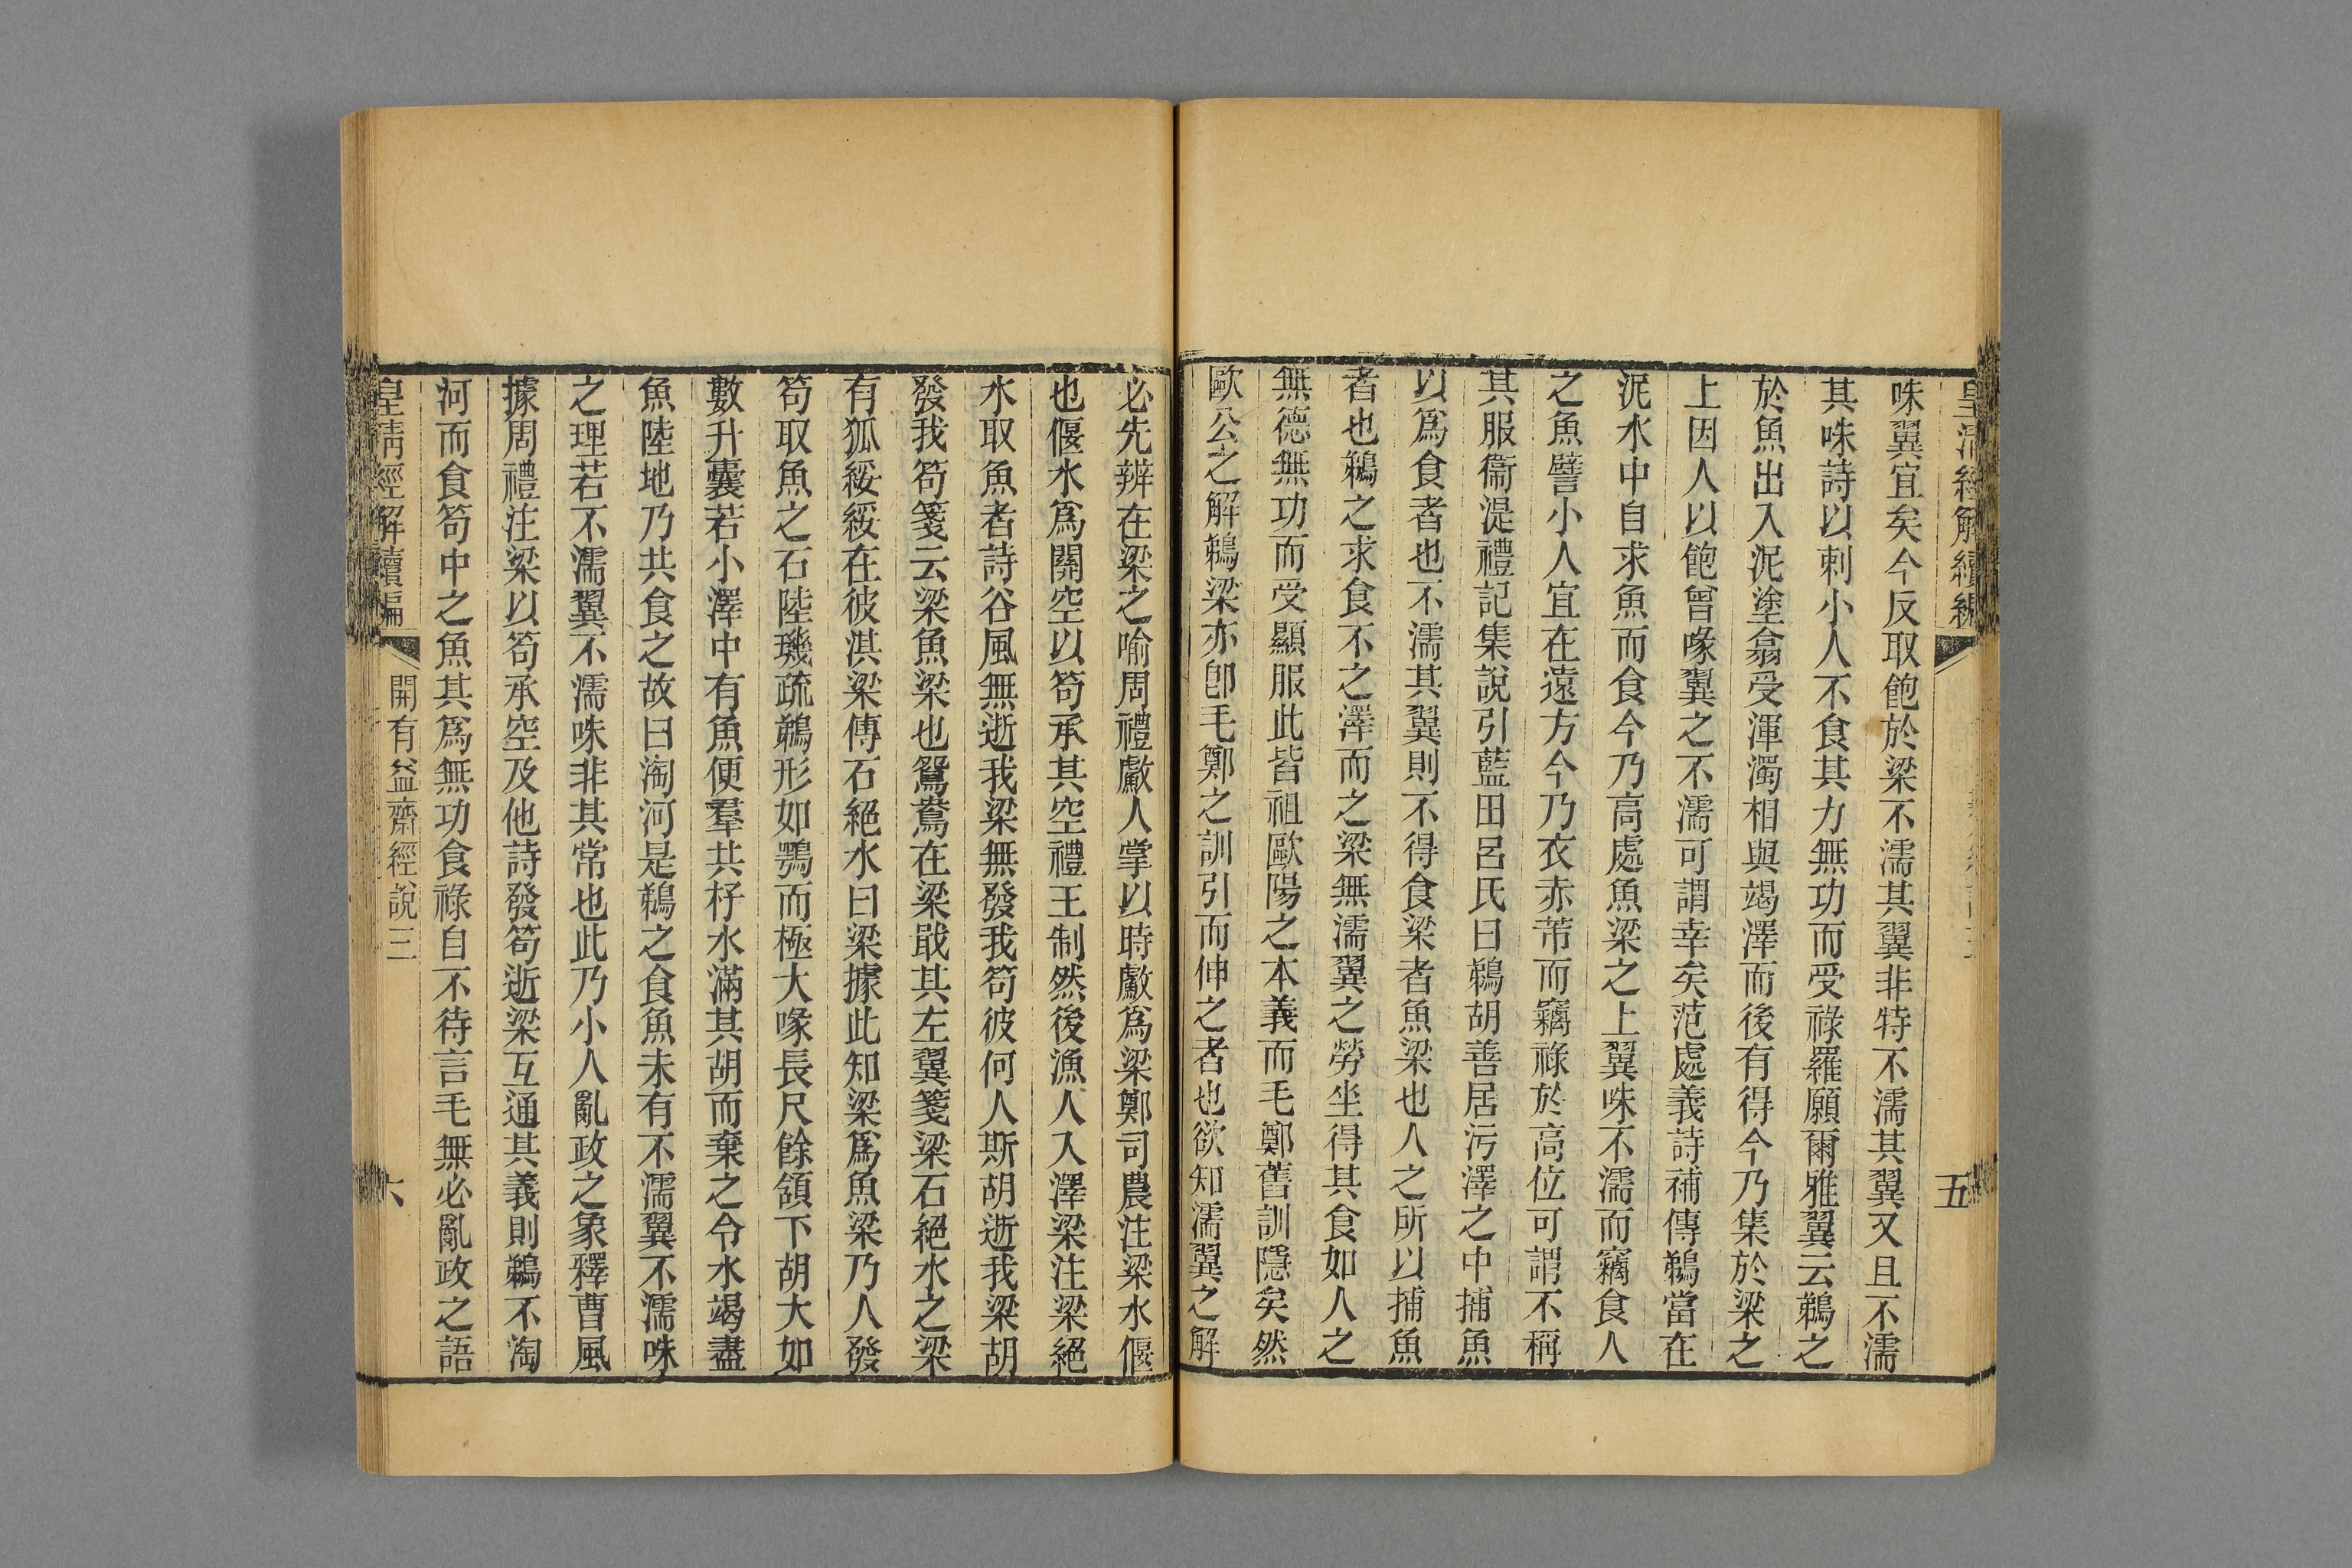 皇清經解續編
五
咮翼宜矣今反取飽於梁不濡其翼非特不濡其翼又且不濡
其咮詩以刺小人不食其力無功而受祿羅願爾雅翼云鵜之
於魚出入泥塗翕受渾濁相與竭澤而後有得今乃集於梁之
上因人以飽曾喙翼之不濡可謂幸矣范處義詩補傳鵜當在
泥水中自求魚而食今乃高處魚梁之上翼咮不濡而竊食人
之魚譬小人宜在遠方今乃衣赤芾而竊祿於高位可謂不稱
其服衞湜禮記集說引藍田呂氏曰鵜胡善居污澤之中捕魚
以爲食者也不濡其翼則不得食梁者魚梁也人之所以捕魚
者也鵜之求食不之澤而之梁無濡翼之勞坐得其食如人之
無德無功而受顯服此皆祖歐陽之本義而毛鄭舊訓隱矣然
歐公之解鵜梁亦卽毛鄭之訓引而伸之者也欲知濡翼之解
必先辨在梁之喻周禮䱷人掌以時䱷爲梁鄭司農注梁水偃
也偃水爲關空以笱承其空禮王制然後漁人入澤梁注梁絕
水取魚者詩谷風無逝我梁無發我笱彼何人斯胡逝我梁胡
發我笱箋云梁魚梁也鴛鴦在梁戢其左翼箋梁石絕水之梁
有狐綏綏在彼淇梁傳石絕水曰梁據此知梁爲魚梁乃人發
笱取魚之石陸璣疏鵜形如鶚而極大喙長尺餘頷下胡大如
數升囊若小澤中有魚便羣共抒水滿其胡而棄之令水竭盡
魚陸地乃共食之故曰淘河是鵜之食魚未有不濡翼不濡咮
之理若不濡翼不濡咮非其常也此乃小人亂政之象釋曹風
據周禮注梁以笱承空及他詩發笱逝梁互通其義則鵜不淘
河而食笱中之魚其爲無功食祿自不待言毛無必亂政之語
皇清經解續編
開有益齋經說三
六